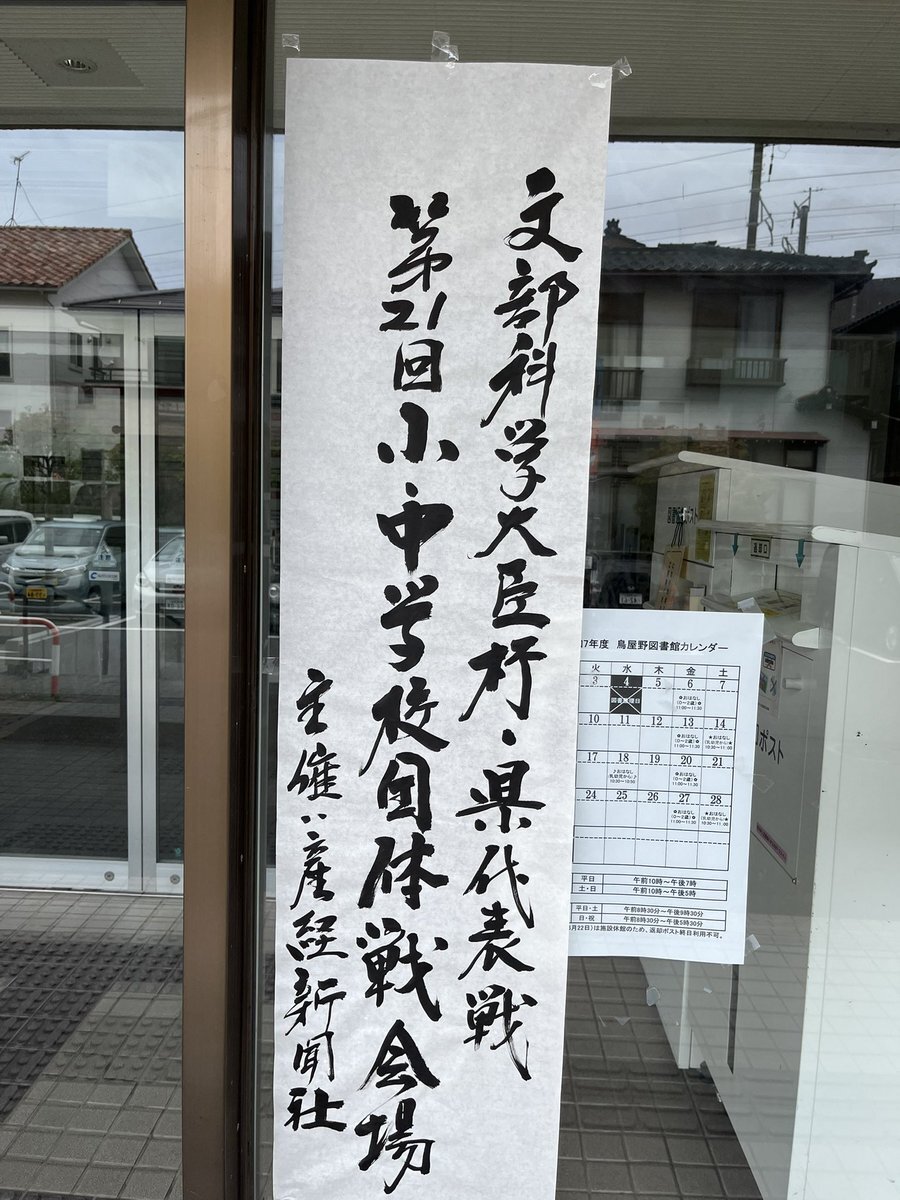 文部科学大臣杯・県代表戦
第21回小・中学校団体戦会場
主催:産経新聞社
7年度 鳥屋野図書館カレンダー
火 水 木 金 土
3 4 5 6 7
図書整理日
✿おはなし
(0~2歳)✿
11:00~11:30
10 11 12 13 14
✿おはなし
(0~2歳)✿
11:00~11:30
★おはなし
(乳幼児から)★
10:30~11:00
17 18 19 20 21
♪おはなし
(乳幼児から)♪
10:30~10:50
✿おはなし
(0~2歳)✿
11:00~11:30
24 25 26 27 28
✿おはなし
(0~2歳)✿
11:00~11:30
★おはなし
(乳幼児から)★
10:30~11:00
平日 午前10時~午後7時
土・日 午前10時~午後5時
平日・土 午前8時30分~午後9時30分
日・祝 午前8時30分~午後5時30分
月22日)は施設休館のため、返却ポスト終日利用不可。
図書返却ポスト
返却口
ポスト